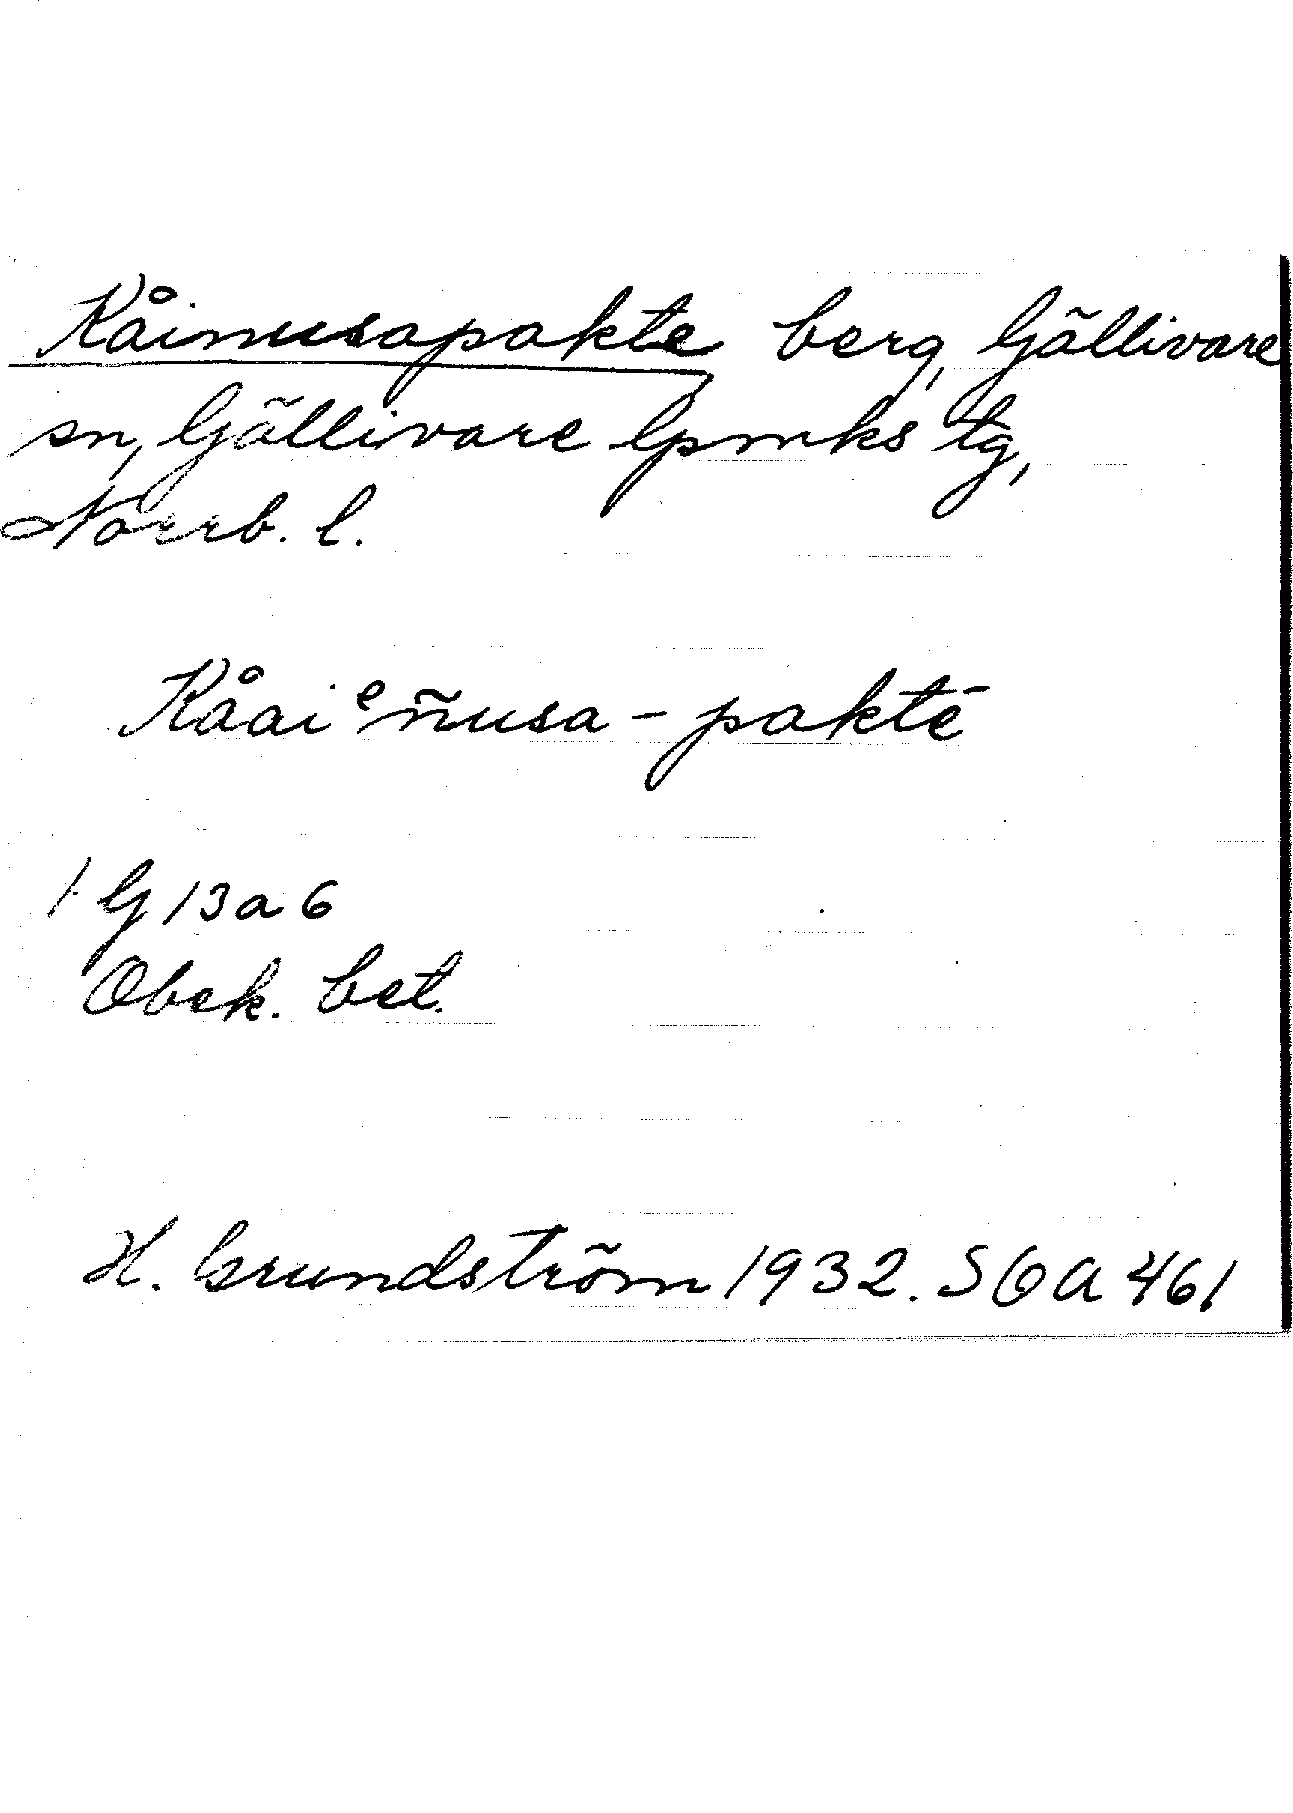 Kåinusapakte berg, Gällivare
sn, Gällivare lpmks tg,
Norrb. l.
Kåaiᵉñusa-paktē
G 13 a 6
Obek. bet.
H. Grundström 1932. SOA 461